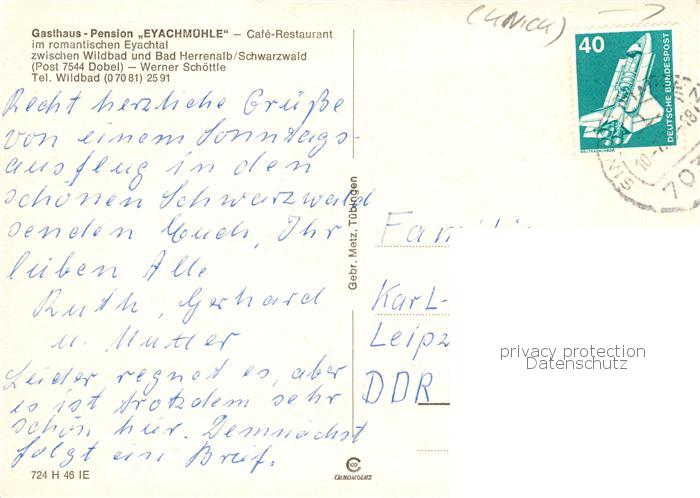 Gasthaus - Pension „EYACHMÜHLE“ – Café-Restaurant
im romantischen Eyachtal
zwischen Wildbad und Bad Herrenalb/Schwarzwald
(Post 7544 Dobel) — Werner Schöttle
Tel. Wildbad (0 70 81) 25 91
Recht herzliche Grüße
von einem Sonntags-
ausflug in den
schönen Schwarzwald
senden Euch, Ihr
lieben Alle
Ruth, Gerhard
u. Mutter
Leider regnet es, aber
es ist trotzdem sehr
schön hier. Demnächst
folgt ein Brief.
724 H 46 IE
Gebr. Metz, Tübingen
CHROMOLUX
40
DEUTSCHE BUNDESPOST
WELTRAUMLABOR
703
Karl-
Leipz
DDR
privacy protection
Datenschutz